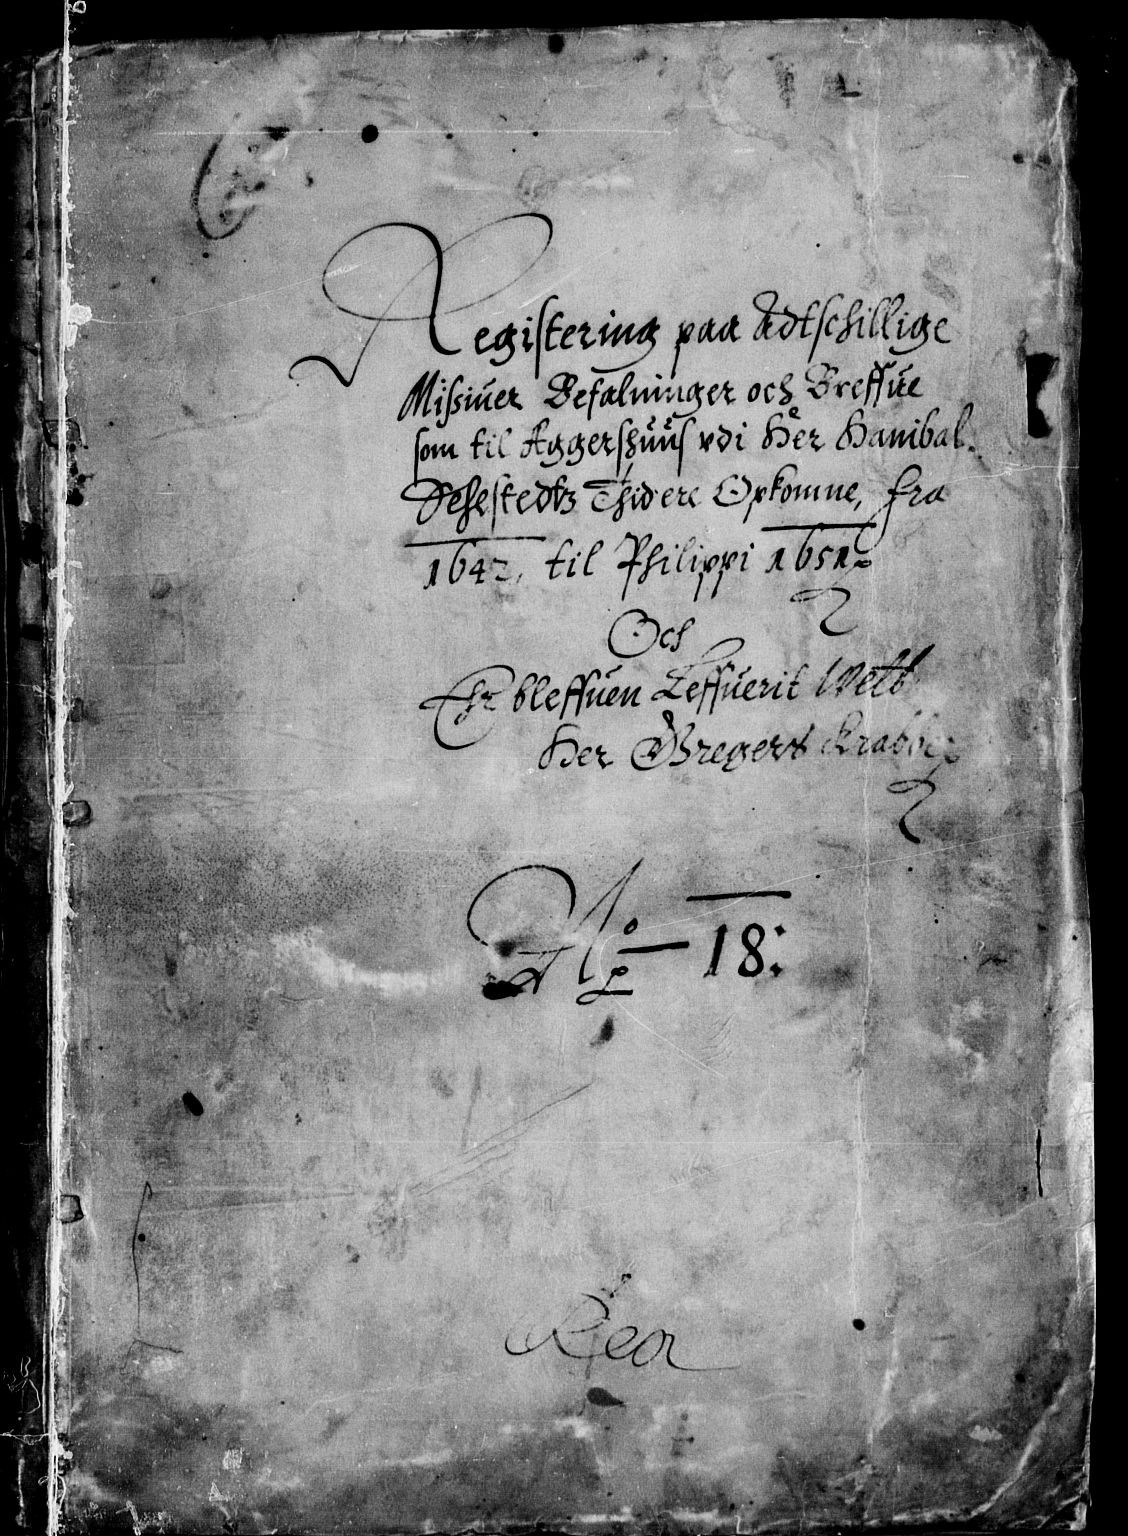 Registering paa Adtschillige
Missiuer Befalninger och Breffue
som til Aggershuus vdi Her Hanibal
Sehestedtz Thidere Opkomne, fra
1642, til Philippi 1651
Och
Er bleffuen Leffuerit Welb
Her Gregers Krabbe
N⁰ 18: